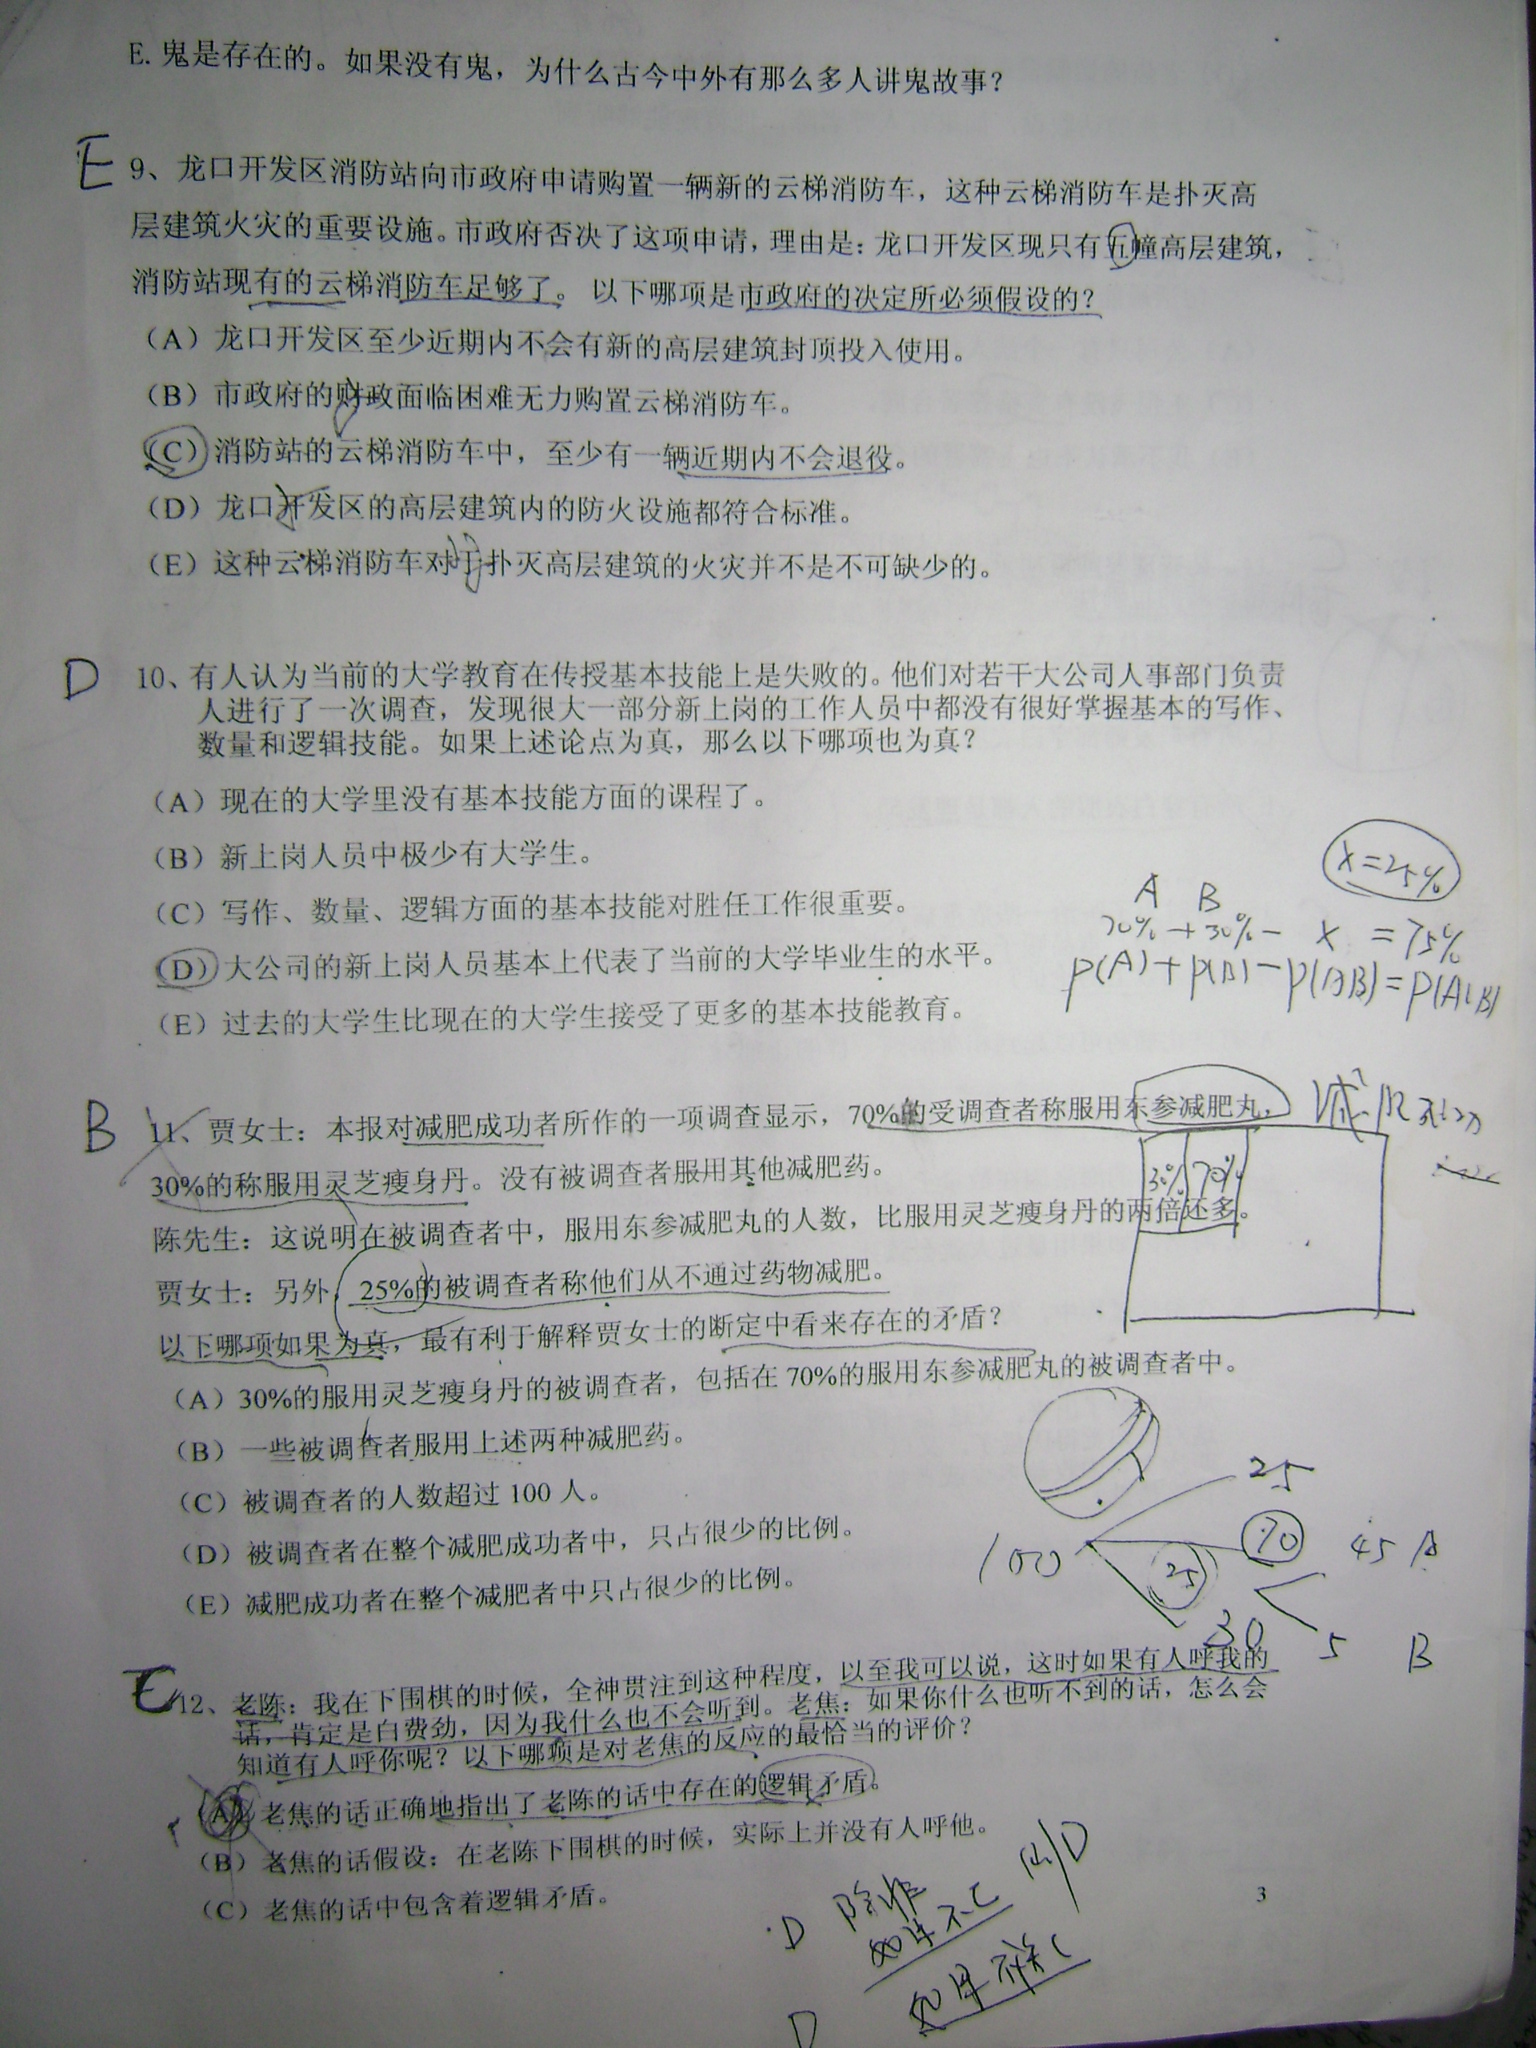 E. 鬼是存在的。如果没有鬼，为什么古今中外有那么多人讲鬼故事？
E
9、龙口开发区消防站向市政府申请购置一辆新的云梯消防车，这种云梯消防车是扑灭高
层建筑火灾的重要设施。市政府否决了这项申请，理由是：龙口开发区现只有五幢高层建筑，
消防站现有的云梯消防车足够了。以下哪项是市政府的决定所必须假设的？
（A）龙口开发区至少近期内不会有新的高层建筑封顶投入使用。
（B）市政府的财政面临困难无力购置云梯消防车。
（C）消防站的云梯消防车中，至少有一辆近期内不会退役。
（D）龙口开发区的高层建筑内的防火设施都符合标准。
（E）这种云梯消防车对于扑灭高层建筑的火灾并不是不可缺少的。
D
10、有人认为当前的大学教育在传授基本技能上是失败的。他们对若干大公司人事部门负责
人进行了一次调查，发现很大一部分新上岗的工作人员中都没有很好掌握基本的写作、
数量和逻辑技能。如果上述论点为真，那么以下哪项也为真？
（A）现在的大学里没有基本技能方面的课程了。
（B）新上岗人员中极少有大学生。
x=25%
（C）写作、数量、逻辑方面的基本技能对胜任工作很重要。
A B
70%+30%- x =75%
（D）大公司的新上岗人员基本上代表了当前的大学毕业生的水平。
P(A)+P(B)-P(AB)=P(A∪B)
（E）过去的大学生比现在的大学生接受了更多的基本技能教育。
B
11、贾女士：本报对减肥成功者所作的一项调查显示，70%的受调查者称服用东参减肥丸，
30%的称服用灵芝瘦身丹。没有被调查者服用其他减肥药。
30% 70%
陈先生：这说明在被调查者中，服用东参减肥丸的人数，比服用灵芝瘦身丹的两倍还多。
贾女士：另外，25%的被调查者称他们从不通过药物减肥。
以下哪项如果为真，最有利于解释贾女士的断定中看来存在的矛盾？
（A）30%的服用灵芝瘦身丹的被调查者，包括在70%的服用东参减肥丸的被调查者中。
（B）一些被调查者服用上述两种减肥药。
（C）被调查者的人数超过100人。
25
（D）被调查者在整个减肥成功者中，只占很少的比例。
100 70 45 A
25
（E）减肥成功者在整个减肥者中只占很少的比例。
30 5 B
12、老陈：我在下围棋的时候，全神贯注到这种程度，以至我可以说，这时如果有人呼我的
话，肯定是白费劲，因为我什么也不会听到。老焦：如果你什么也听不到的话，怎么会
知道有人呼你呢？以下哪项是对老焦的反应的最恰当的评价？
（A）老焦的话正确地指出了老陈的话中存在的逻辑矛盾。
（B）老焦的话假设：在老陈下围棋的时候，实际上并没有人呼他。
（C）老焦的话中包含着逻辑矛盾。
3
D
D